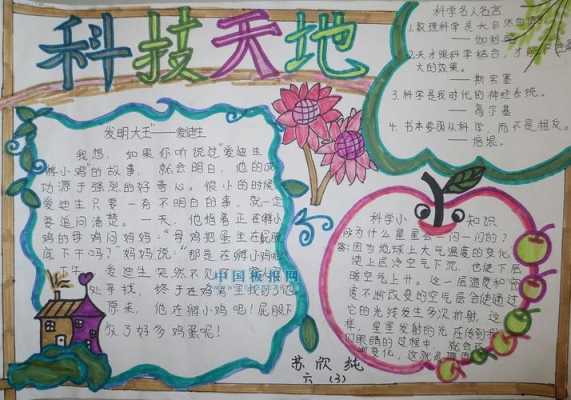 科技天地
科学名人名言
1.数理科学是大自然
——伽利略
2.天才跟科学结合,才能
大的效果。
——斯宾塞
3.科学是我时代的神经系统。
——高尔基
4.书本要跟从科学,而不是相反。
——培根。
发明大王——爱迪生
我想,如果你听说过"爱迪生
孵小鸡"的故事,就会明白,他的成
功源于强烈的好奇心。很小的时候
爱迪生只要一有不明白的事,就一定
要追问清楚。一天,他指着正在孵小
鸡的母鸡问妈妈:"母鸡把蛋坐在屁股
底下干吗?"妈妈说:"那是在孵小鸡
爱迪生突然不见
处寻找,终于在鸡窝里找到了他
原来,他在孵小鸡呢!屁股下
放了好多鸡蛋呢!
中国板报网
科学小知识
为什么星星会一闪一闪的?
答:因为地球上大气温度的变化,
使上层冷空气下沉,也使下层
暖空气上升。这一层温度和密
度不断改变的空气层会使通过
它的光线发生多次折射,这
样,星星发射的光在传到
们眼睛的过程中,就会
变化,这就
苏欣纯
六(3)